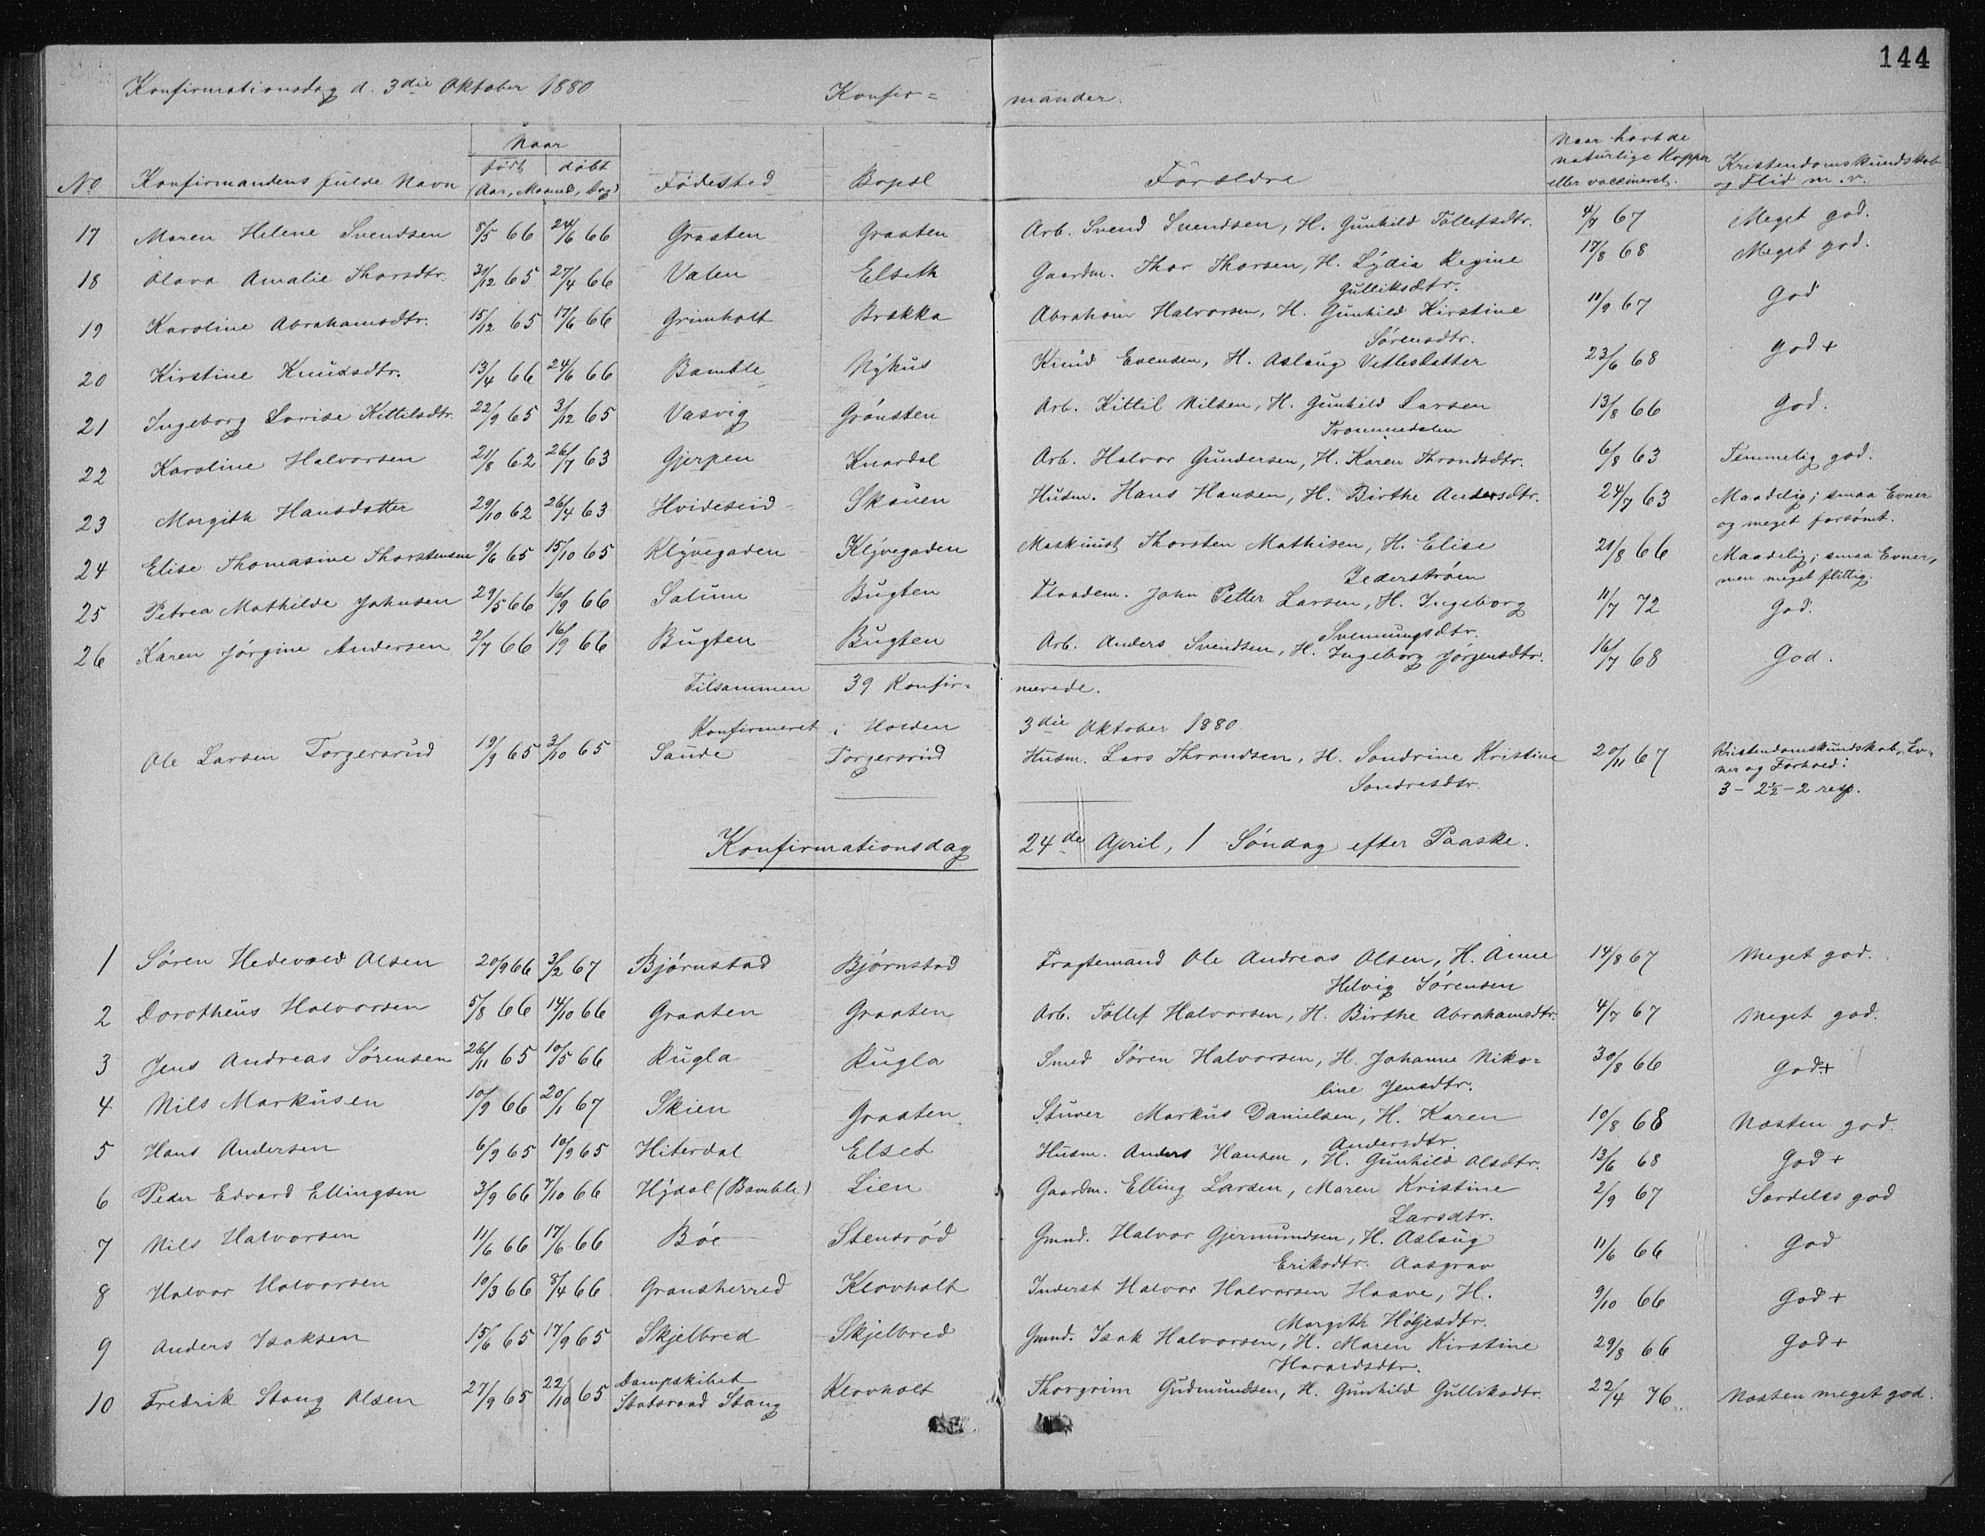 144
Konfirmationsdag d. 3die Oktober 1880 Konfir= mander.
No Konfirmandens fulde Navn Naar født døbt (Aar, Maaned, Dag) Fødested Bopæl Forældre Naar havt de naturlige Kopper eller vaccineret. Kristendomskundskab og Flid m. v.
17 Maren Helene Svendsen 7/5 66 24/6 66 Graaten Graaten Arb. Svend Svendsen, H. Gunhild Tollefsdtr. 4/7 67 Meget god.
18 Olava Amalie Thorsdtr. 31/12 65 27/4 66 Valen Elseth Gaardm. Thor Thorsen, H. Lydia Regine 17/8 68 Meget god.
Gulliksdtr.
19 Karoline Abrahamsdtr. 15/12 65 17/6 66 Grimholt Brække Abraham Halvorsen, H. Gunhild Kirstine 11/9 67 God
Sørensdtr.
20 Kirstine Knudsdtr. 13/4 66 24/6 66 Bamble Nyhus Knud Evensen, H. Aslaug Vetlesdatter 23/6 68 God +
21 Ingeborg Lovise Kittilsdtr. 22/9 65 3/12 65 Vasvig Grønsten Arb. Kittil Nilsen, H. Gunhild Larsen 13/8 66 God.
Trommedalen
22 Karoline Halvorsen 21/8 62 26/7 63 Gjerpen Knardal Arb. Halvor Gundersen, H. Karen Throndsdtr. 6/8 63 Temmelig god.
23 Margith Hansdatter 29/10 62 26/4 63 Hvideseid Skauen Husm. Hans Hansen, H. Birthe Andersdtr. 24/7 63 Maadelig; smaa Evner
og meget forsømt.
24 Elise Thomasine Thorstensen 9/6 65 15/10 65 Klyvegaden Klyvegaden Maskinist Thorsten Mathisen, H. Elise 21/8 66 Maadelig; smaa Evner,
Zederstrøm men meget flittig.
25 Petrea Mathilde Johnsen 29/5 66 16/9 66 Salum Bugten Flaadem. John Petter Larsen, H. Ingeborg 11/7 72 God.
Svennungsdtr.
26 Karen Jørgine Andersen 2/7 66 16/9 66 Bugten Bugten Arb. Anders Svendsen, H. Ingeborg Jørgensdtr. 16/7 68 God.
Tilsammen 39 Konfir= merede.
Konfirmeret i Holden 3die Oktober 1880
Ole Larsen Torgersrud 19/9 65 3/10 65 Saude Torgersrud Husm. Lars Throndsen, H. Sondrine Kristine 20/11 67 Kristendomskundskab, Ev=
ner og Forhold:
Sondresdtr. 3 - 2½ - 2 resp.
Konfirmationsdag 24de April, 1 Søndag efter Paaske.
1 Søren Hedevald Olsen 20/9 66 3/2 67 Bjørnstad Bjørnstad Fragtemand Ole Andreas Olsen, H. Anne 14/8 67 Meget god.
Helvig Sørensen
2 Dorotheus Halvorsen 5/8 66 14/10 66 Graaten Graaten Arb. Tollef Halvorsen, H. Birthe Abrahamsdtr. 4/7 67 Meget god.
3 Jens Andreas Sørensen 26/11 65 10/5 66 Rugla Rugla Smed Søren Halvorsen, H. Johanne Niko= 30/8 66 God+
line Jensdtr.
4 Nils Markusen 10/9 66 20/1 67 Skien Graaten Stuver Markus Danielsen, H. Karen 10/8 68 Næsten god.
Andersdtr.
5 Hans Andersen 6/9 65 10/9 65 Hiterdal Elset Husm. Anders Hansen, H. Gunhild Olsdtr. 13/6 68 God +
6 Peder Edvard Ellingsen 3/9 66 7/10 66 Hydal (Bamble) Lien Gaardm. Elling Larsen, Maren Kristine 2/9 67 Særdeles god
Larsdtr.
7 Nils Halvorsen 11/6 66 17/6 66 Bøe Stensrød Gmnd. Halvor Gjermundsen, H. Aslaug 11/6 66 God
Eriksdtr. Aasgrav
8 Halvor Halvorsen 10/3 66 8/4 66 Gransherred Klovholt Inderst Halvor Halvorsen Haave, H. 9/10 66 God +
Margith Høljesdtr.
9 Anders Isaksen 15/6 65 17/9 65 Skjelbred Skjelbred Gmnd. Isak Halvorsen, H. Maren Kirstine 29/8 66 God +
Havardsdtr.
10 Fredrik Stang Olsen 27/9 65 22/10 65 Dampskibet Statsraad Stang Klovholt Thorgrim Gudmundsen, H. Gunhild Gulliksdtr. 22/4 76 Næsten meget god.